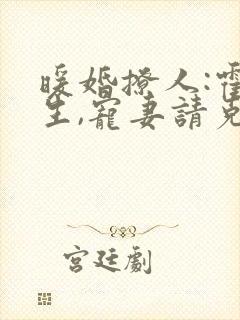 暖婚撩人:霍
生,寵妻請克
宮廷劇